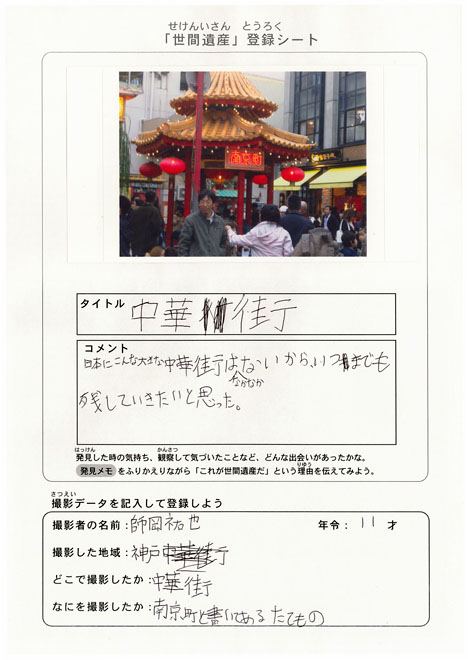 せけんいさん とうろく
「世間遺産」登録シート
南京町
タイトル
中華街
コメント
日本にこんな大きな中華街はなかなかないから、いつまでも
残していきたいと思った。
はっけん かんさつ
発見した時の気持ち、観察して気づいたことなど、どんな出会いがあったかな。
りゆう
発見メモ をふりかえりながら「これが世間遺産だ」という理由を伝えてみよう。
さつえい
撮影データを記入して登録しよう
撮影者の名前：師岡祐也 年令：11 才
撮影した地域：神戸
どこで撮影したか：中華街
なにを撮影したか：南京町と書いてあるたてもの